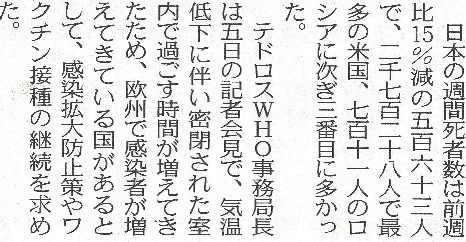 日本の週間死者数は前週
比15％減の五百六十三人
で、二千七百二十八人で最
多の米国、七百十一人のロ
シアに次ぎ三番目に多かっ
た。
　テドロスＷＨＯ事務局長
は五日の記者会見で、気温
低下に伴い密閉された室
内で過ごす時間が増えてき
たため、欧州で感染者が増
えてきている国があると
して、感染拡大防止策やワ
クチン接種の継続を求め
た。